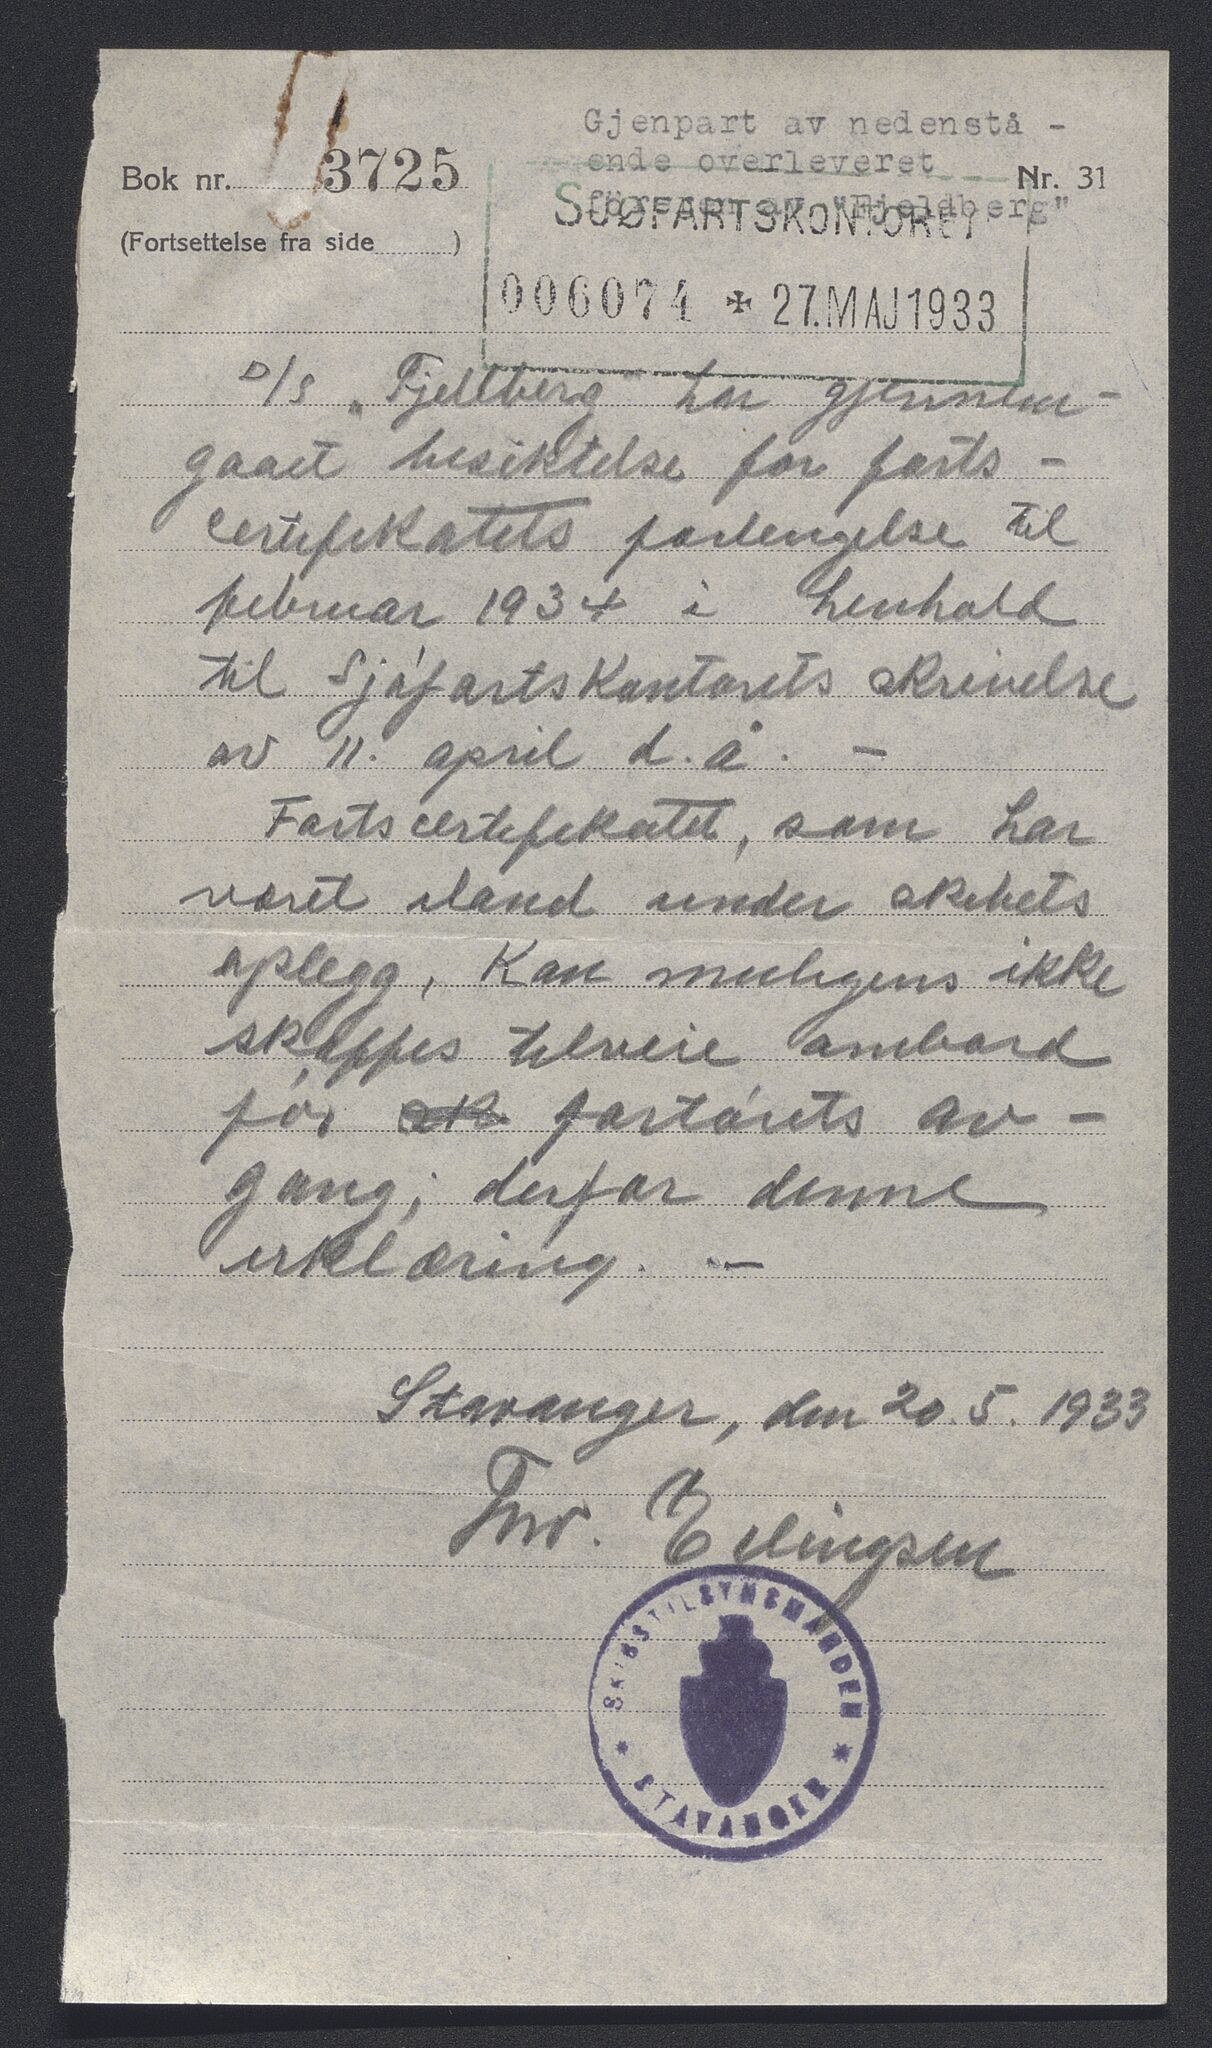 Gjenpart av nedenstå -
ende overleveret
Bok nr. 3725
Nr. 31
föreren av "Fjeldberg"
SJØFARTSKONTORET
(Fortsettelse fra side )
006074 ✠ 27.MAJ1933
D/S „Fjeldberg" har gjennem-
gaaet besiktelse for farts -
certifikatets forlengelse til
februar 1934 i henhold
til Sjøfartskontorets skrivelse
av 11. april d.å. -
Fartscertifikatet, som har
været iland under skibets
oplegg, kan muligens ikke
skaffes tilveie ombord
før fartøiets av -
gang; derfor denne
erklæring. -
Stavanger, den 20.5.1933
SKIBSTILSYNSMANDEN
* STAVANGER *